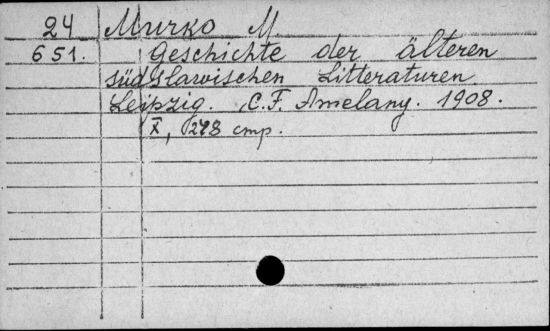 24 Murko M.
651. Geschichte der älteren
südslawischen Litteraturen.
Leipzig. C.F. Amelang. 1908.
X, 248 cmp.